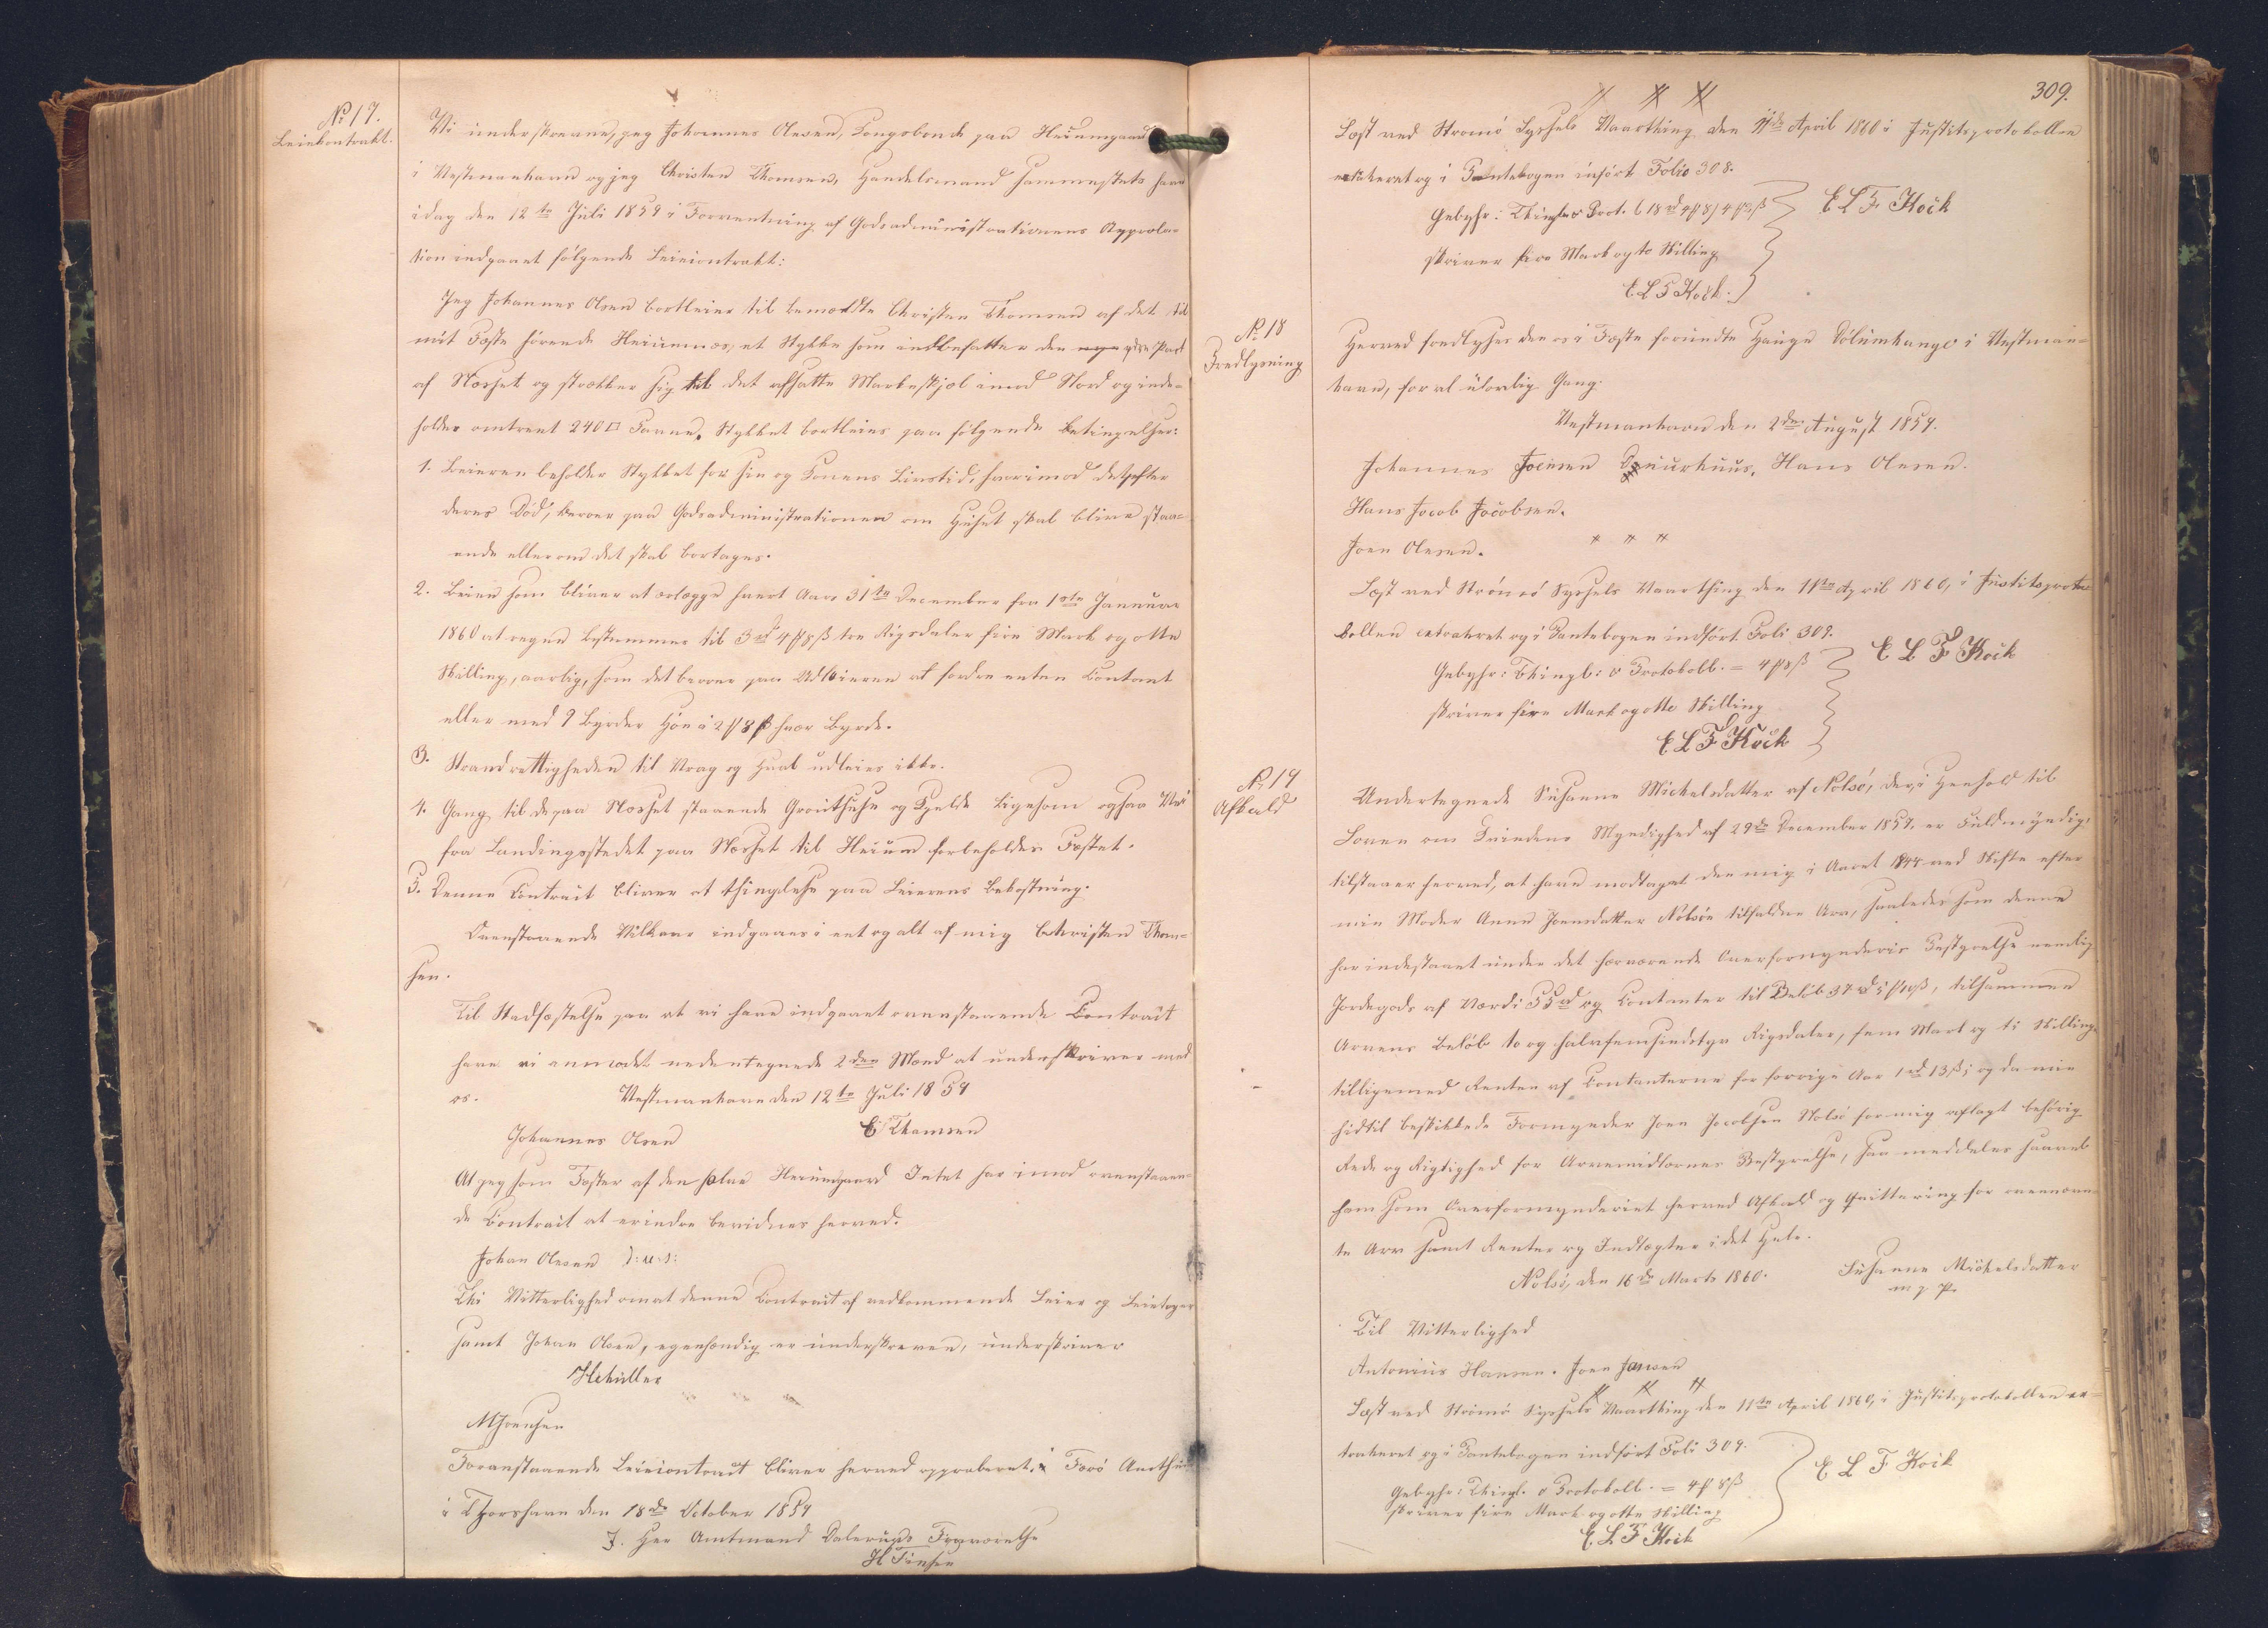 No 17.
Leiekontrakt.
Vi underskrevne, jeg Johannes Olesen, Kongsbonde paa Heiumgaard
i Vestmanhavn og jeg Christen Thomsen, Handelsmand sammestets have
idag den 12te Juli 1859 i Forventning af Godsadministrationens Approba-
tion indgaaet følgende Leiecontrakt:
Jeg Johannes Olsen bortleier til bemeldte Christen Thomsen af det til
mit Fæste hørende Heiumnæs, et Stykke som indbefatter den ydre Part
af Næsset og strækker sig til det afsatte Markeskjel imod Nord og inde-
holder omtrent 240 □ Favne. Stykket bortleies paa følgende Betingelser:
1. Leieren beholder Stykket for sin og Konens Livstid, hvorimod det efter
deres Død, beroer paa Godsadministrationen om Huset skal blive staa-
ende eller om det skal borttages.
2. Leien som bliver at erlægge hvert Aars 31te December fra 1ste Januar
1860 at regne bestemmes til 3rd 4 ₻ 8 ß tre Rigsdaler fire Mark og otte
Skilling, aarlig, som det beroer paa Udleieren at fordre enten Contant
eller med 9 Byrder Høe à 2 ₻ 8 ß hver Byrde.
3. Strandrettigheden til Vrag og Hval udleies ikke.
4. Gang til de paa Næsset staaende Grouthuse og Kjelde ligesom ogsaa Vei
fra Landingsstedet paa Næsset til Heium forbeholdes Fæstet.
5. Denne Contract bliver at thinglese paa Leierens Bekostning.
Ovenstaaende Vilkaar indgaaes i eet og alt af mig Christen Thom-
sen.
Til Stadfæstelse paa at vi have indgaaet ovenstaaende Contract
have vi anmodet nedentegnede 2den Mænd at underskriver med
os. Vestmanhavn den 12te Juli 1859
Johannes Olsen C Thomsen
At jeg som Fæster af den halve Heiumgaard Intet har imod ovenstaaen-
de Contract at erindre bevidnes herved.
Johan Olesen
Thi Vitterlighed om at denne Contract af vedkommende Leier og Leietager
samt Johan Olsen, egenhændig er underskreven, underskriver
HMüller
MJoensen
Foranstaaende Leiecontract bliver herved approberet. Færø Amthuus
i Thorshavn den 18de October 1859
I Her Amtmand Dalerups Fraværelse
H Finsen
309.
Læst ved Strømø Syssels Vaarthing den 11te April 1860 i Justitsprotokollen
extraheret og i Pantebogen indført Folio 308.
Gebyhr: Thingl. o Prot. 4 ₻ 2 ß
skriver fire Mark og to Skilling
E L F Kock.
E L F Kock
No 18
Fredlysning
Herved fredlyses den os i Fæste forundte Hauge Dølumhauge i Vestman-
havn, for al ulovlig Gang.
Vestmanhavn den 2den August 1859.
Johannes Joensen Hans Olesen.
Hans Jacob Jacobsen.
Joen Olesen.
Læst ved Strømø Syssels Vaarthing den 11te April 1860, i Justitsproto-
kollen extraheret og i Pantebogen indført Foli 309.
Gebyhr: Thingl: o Protokoll. = 4 ₻ 8 ß
skriver fire Mark og otte Skilling
E L F Kock
E L F Kock
No 19
Afkald
Undertegnede Susanne Mickelsdatter af Nolsø, der, i Henhold til
Loven om Kvindens Myndighed af 29de December 1857. er Fuldmyndig,
tilstaaer herved, at have modtaget den mig i Aaret 1844 ved Skifte efter
min Moder Anna Joensdatter Nolsøe tilfaldne Arv, saaledes som denne
har indestaaet under det herværende Overformynderies Bestyrelse nemlig
Jordegods af Værdi 55rd og Contanter til Beløb 37rd 5 ₻ 10 ß, tilsammen
Arvens Beløb to og halvfemsindstyve Rigsdaler, fem Mark og ti Skilling,
tilligemed Renten af Contanterne for forrige Aar 1rd 13 ß; og da min
hidtil beskikkede Formynder Joen Jacobsen Nolsø for mig aflagt behørig
Rede og Rigtighed for Arvemidlernes Bestyrelse, saa meddeles saavel
ham som Overformynderiet herved Afkald og Qvittering for ovennævn-
te Arv samt Renter og Indtægter i det Hele.
Nolsø, den 16de Marts 1860. Susanne Mickelsdatter
m. f. P.
Til Vitterlighed
Antonius Hansen. Joen Jansen
Læst ved Strømø Syssels Vaarthing den 11te April 1860, i Justitsprotokollen ex-
traheret og i Pantebogen indført Foli 309.
Gebyhr: Thingl. o Protokoll. = 4 ₻ 8 ß
skriver fire Mark og otte Skilling
E. L F Kock
E L F Kock